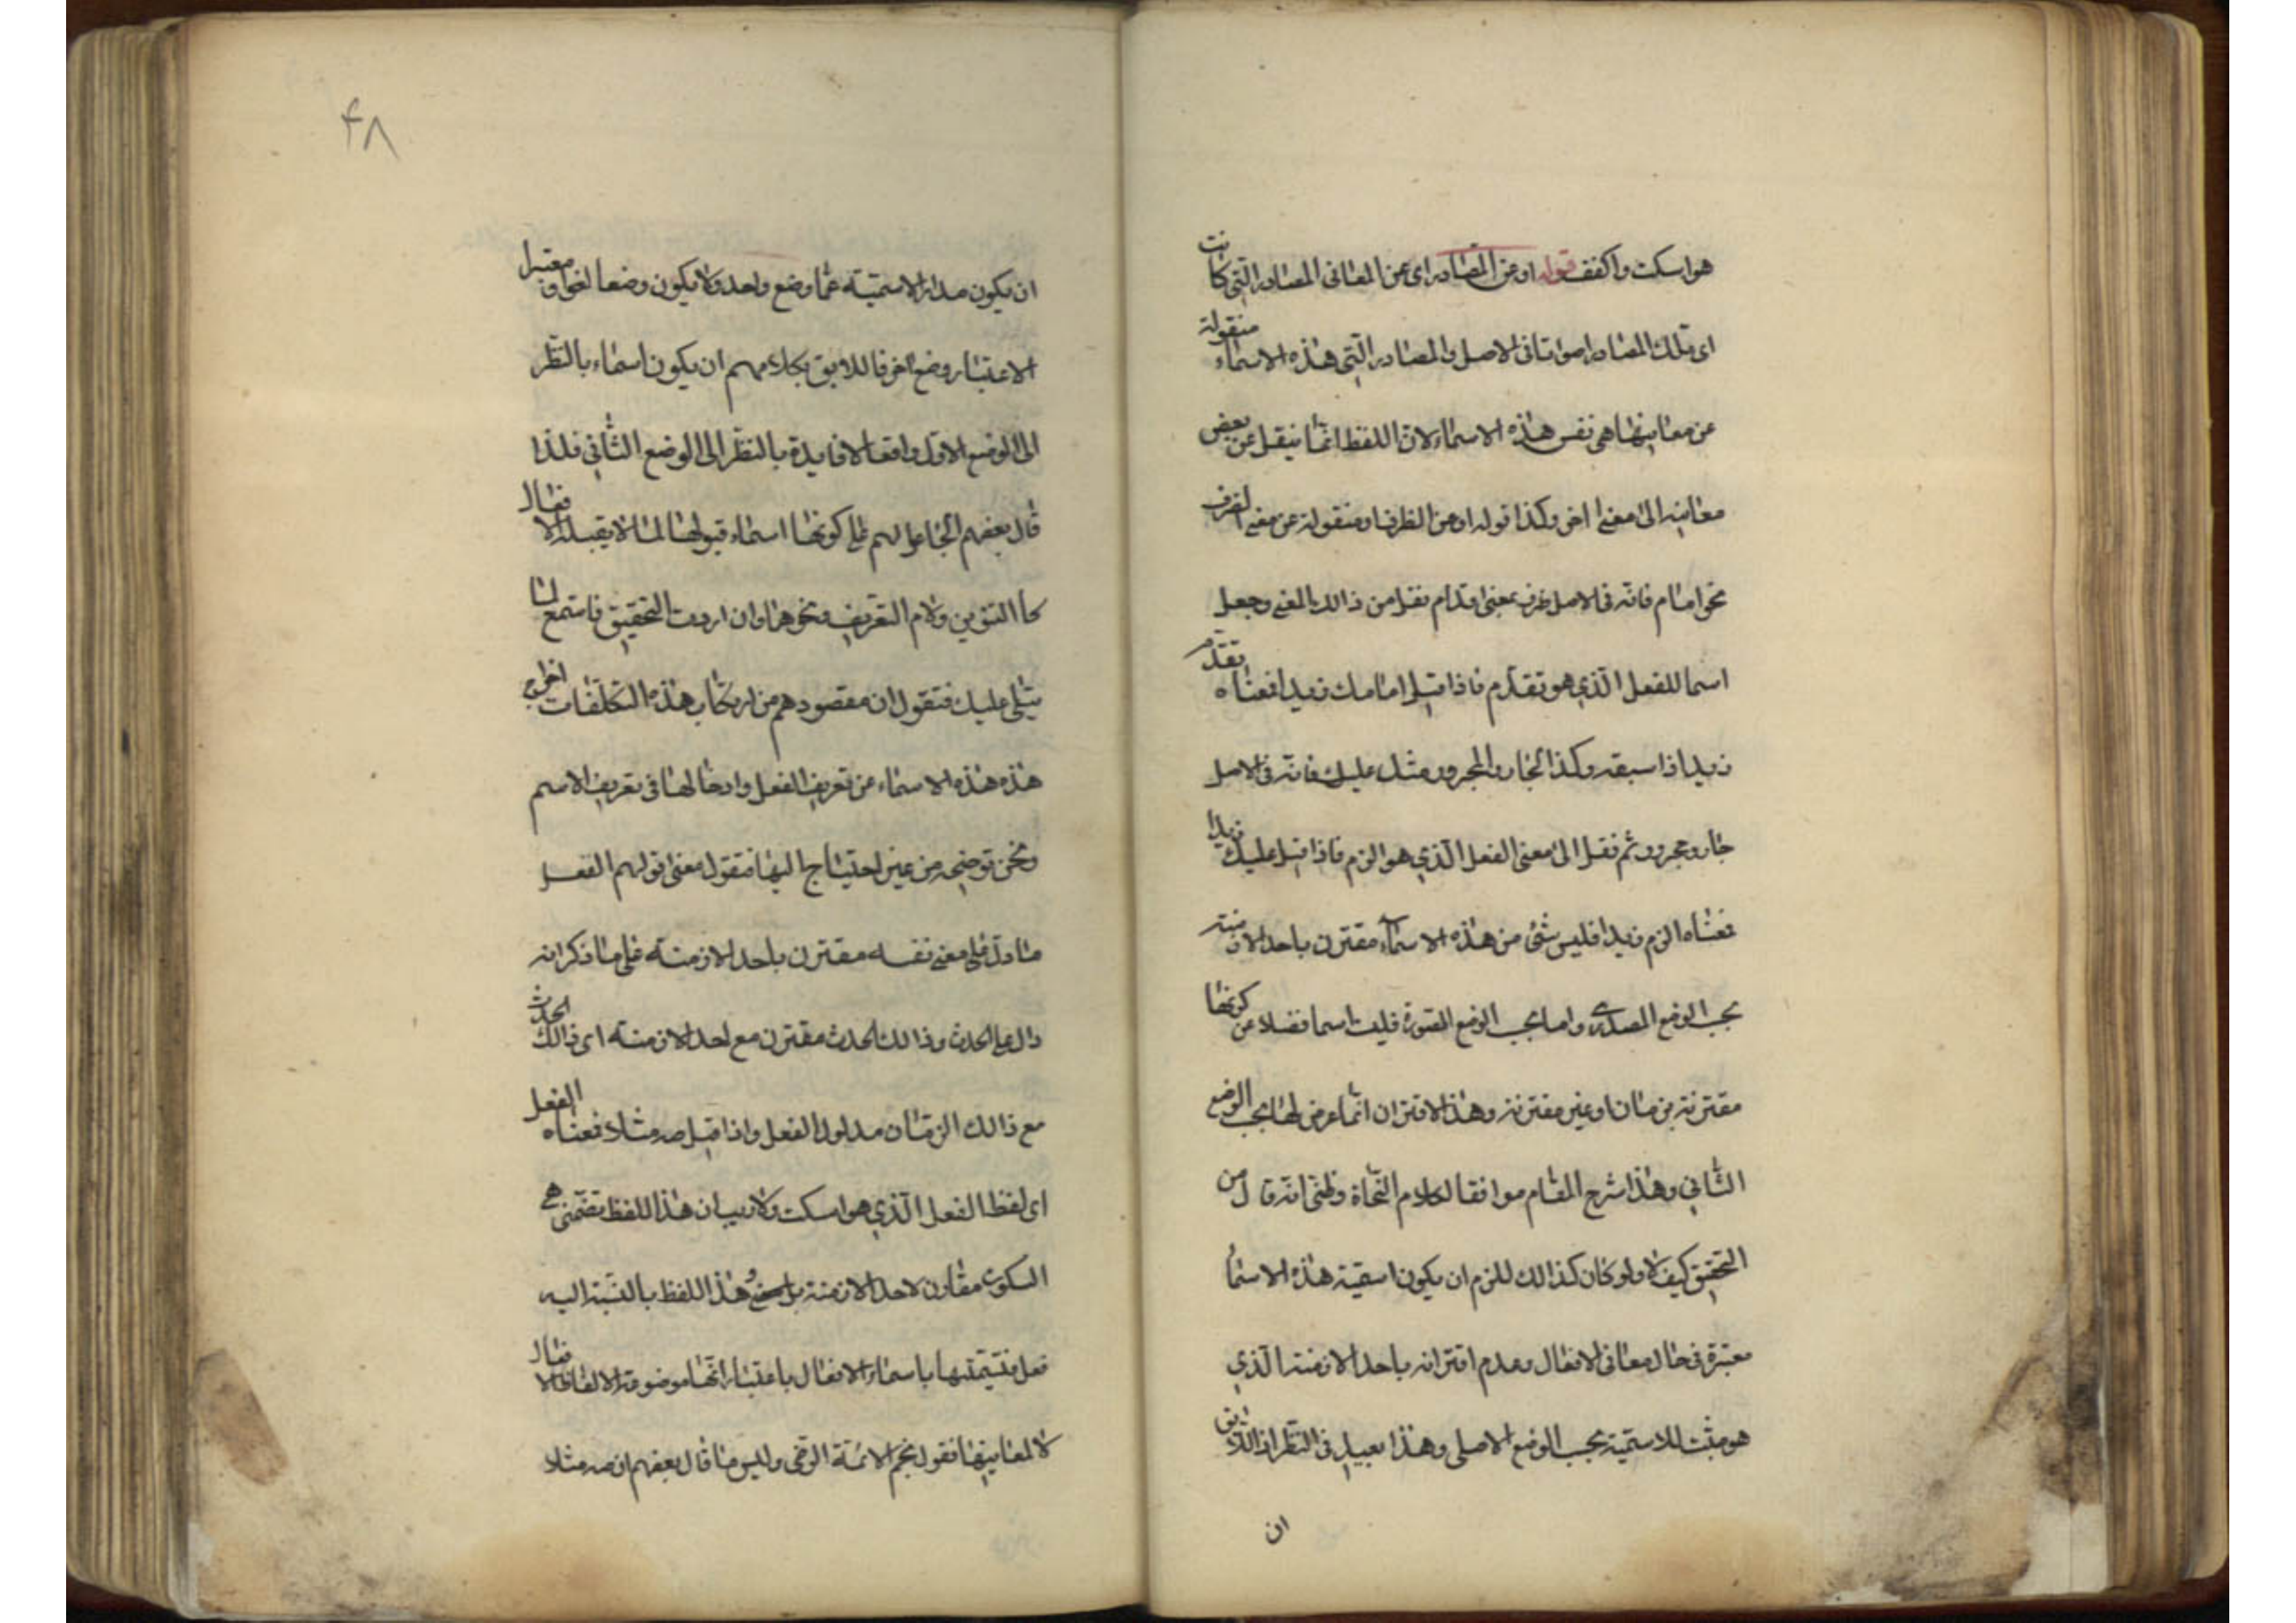 هو اسكت واكفف قوله او عن المصادر اى عن المعانى المصادر التى كانت
اى تلك المصادر اصواتا فى الاصل والمصادر التى هذه الاسماء منقولة
عن معانيها هى نفس هذه الاسماء لان اللفظ انما ينقل عن بعض
معانيه الى معنى اخر وكذا قوله او عن الظرف او منقولة عن معنى الظرف
نحو امام فانه فى الاصل ظرف بمعنى قدام نقل من ذالك المعنى وجعل
اسما للفعل الذي هو تقدم فاذا قيل امامك زيدا فمعناه تقدم
زيدا اذا سبقه وكذا الجار والمجرور مثل عليك فانه فى الاصل
جار ومجرور ثم نقل الى معنى الفعل الذي هو الزم فاذا قيل عليك زيدا
فمعناه الزم زيدا فليس شئ من هذه الاسماء مقترن باحد الازمنة
بحسب الوضع المصدرى واما بحسب الوضع الصورة فليت اسما فضلا عن كونها
مقترنة بزمان او غير مقترنة وهذا الاقتران انما عرض لها بحسب الوضع
الثاني وهذا شرح المقام موافقا لكلام النحاة وظنى انه قال من
التحقيق كيف لا ولو كان كذالك للزم ان يكون اسمية هذه الاسماء
معتبرة فى حال معانى الافعال وعدم اقترانه باحد الازمنة الذي
هو مثبت للاسمية بحسب الوضع الاصلى وهذا بعيد فى النظر اذ اللايق
ان
۴۸
ان يكون مدار الاسمية عما وضع واحد ولا يكون وضعا لغوا ومعتبرا
الاعتبار وضع اخر فاللايق بكلامهم ان يكون اسماء بالنظر
الى الوضع الاول وافعالا فايدة بالنظر الى الوضع الثانى فلذا
قال بعضهم الجاعل لهم على كونها اسماء قبولها لما لا يقبله الافعال
كالتنوين ولام التعريف ونحوها وان اردت التحقيق فاستمع لما
يتلى عليك فنقول ان مقصودهم من ارتكاب هذه التكلفات اخراج
هذه هذه الاسماء عن تعريف الفعل وادخالها فى تعريف الاسم
ونحن توضحه من غير احتياج اليها فنقول معنى قولهم الفعل
ما دل على معنى نفسه مقترن باحد الازمنة على ما ذكر انه
دال على الحدث وذالك الحدث مقترن مع احد الازمنة اى ذالك الحدث
مع ذالك الزمان مدلول الفعل واذا قيل صه مثلا فمعناه الفعل
اى لفظ الفعل الذي هو اسكت ولا ريب ان هذا اللفظ تضمنى هى
السكوت مقارن لاحد الازمنة بل وهذا اللفظ بالنسبة اليه
فعل فتسميتها باسماء الافعال باعتبار انها موضوعة الالفاظ الافعال
لا لمعانيها فقول نجم الائمة الرضى وليس ما قال بعضهم ان صه مثلا